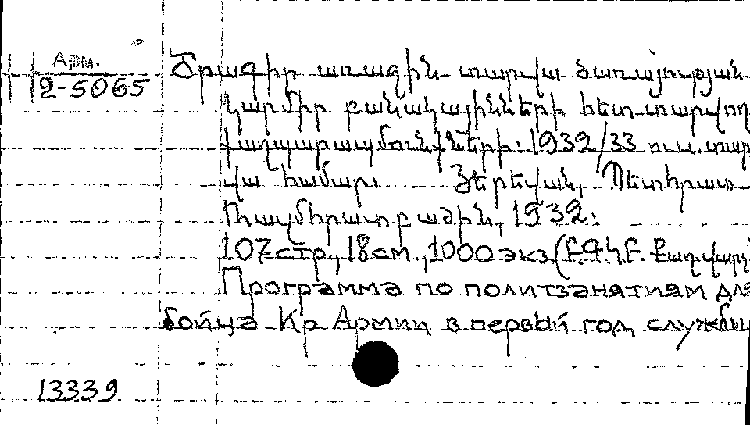 Арм.
2-5065
Ծրագիր առաջին տարվա ծառայության
կարմիր բանակայինների հետ տարվող
քաղպարապմունքների: 1932/33 ուս. տար
վա համար: Յերեվան, Պետհրատ
Ռազմհրատբաժին, 1932:
107 стр, 18 см, 1000 экз (Բ.Գ.Կ.Բ. Քաղվարչ
Программа по политзанятиям для
бойца Кр Армии в первый год службы
13339